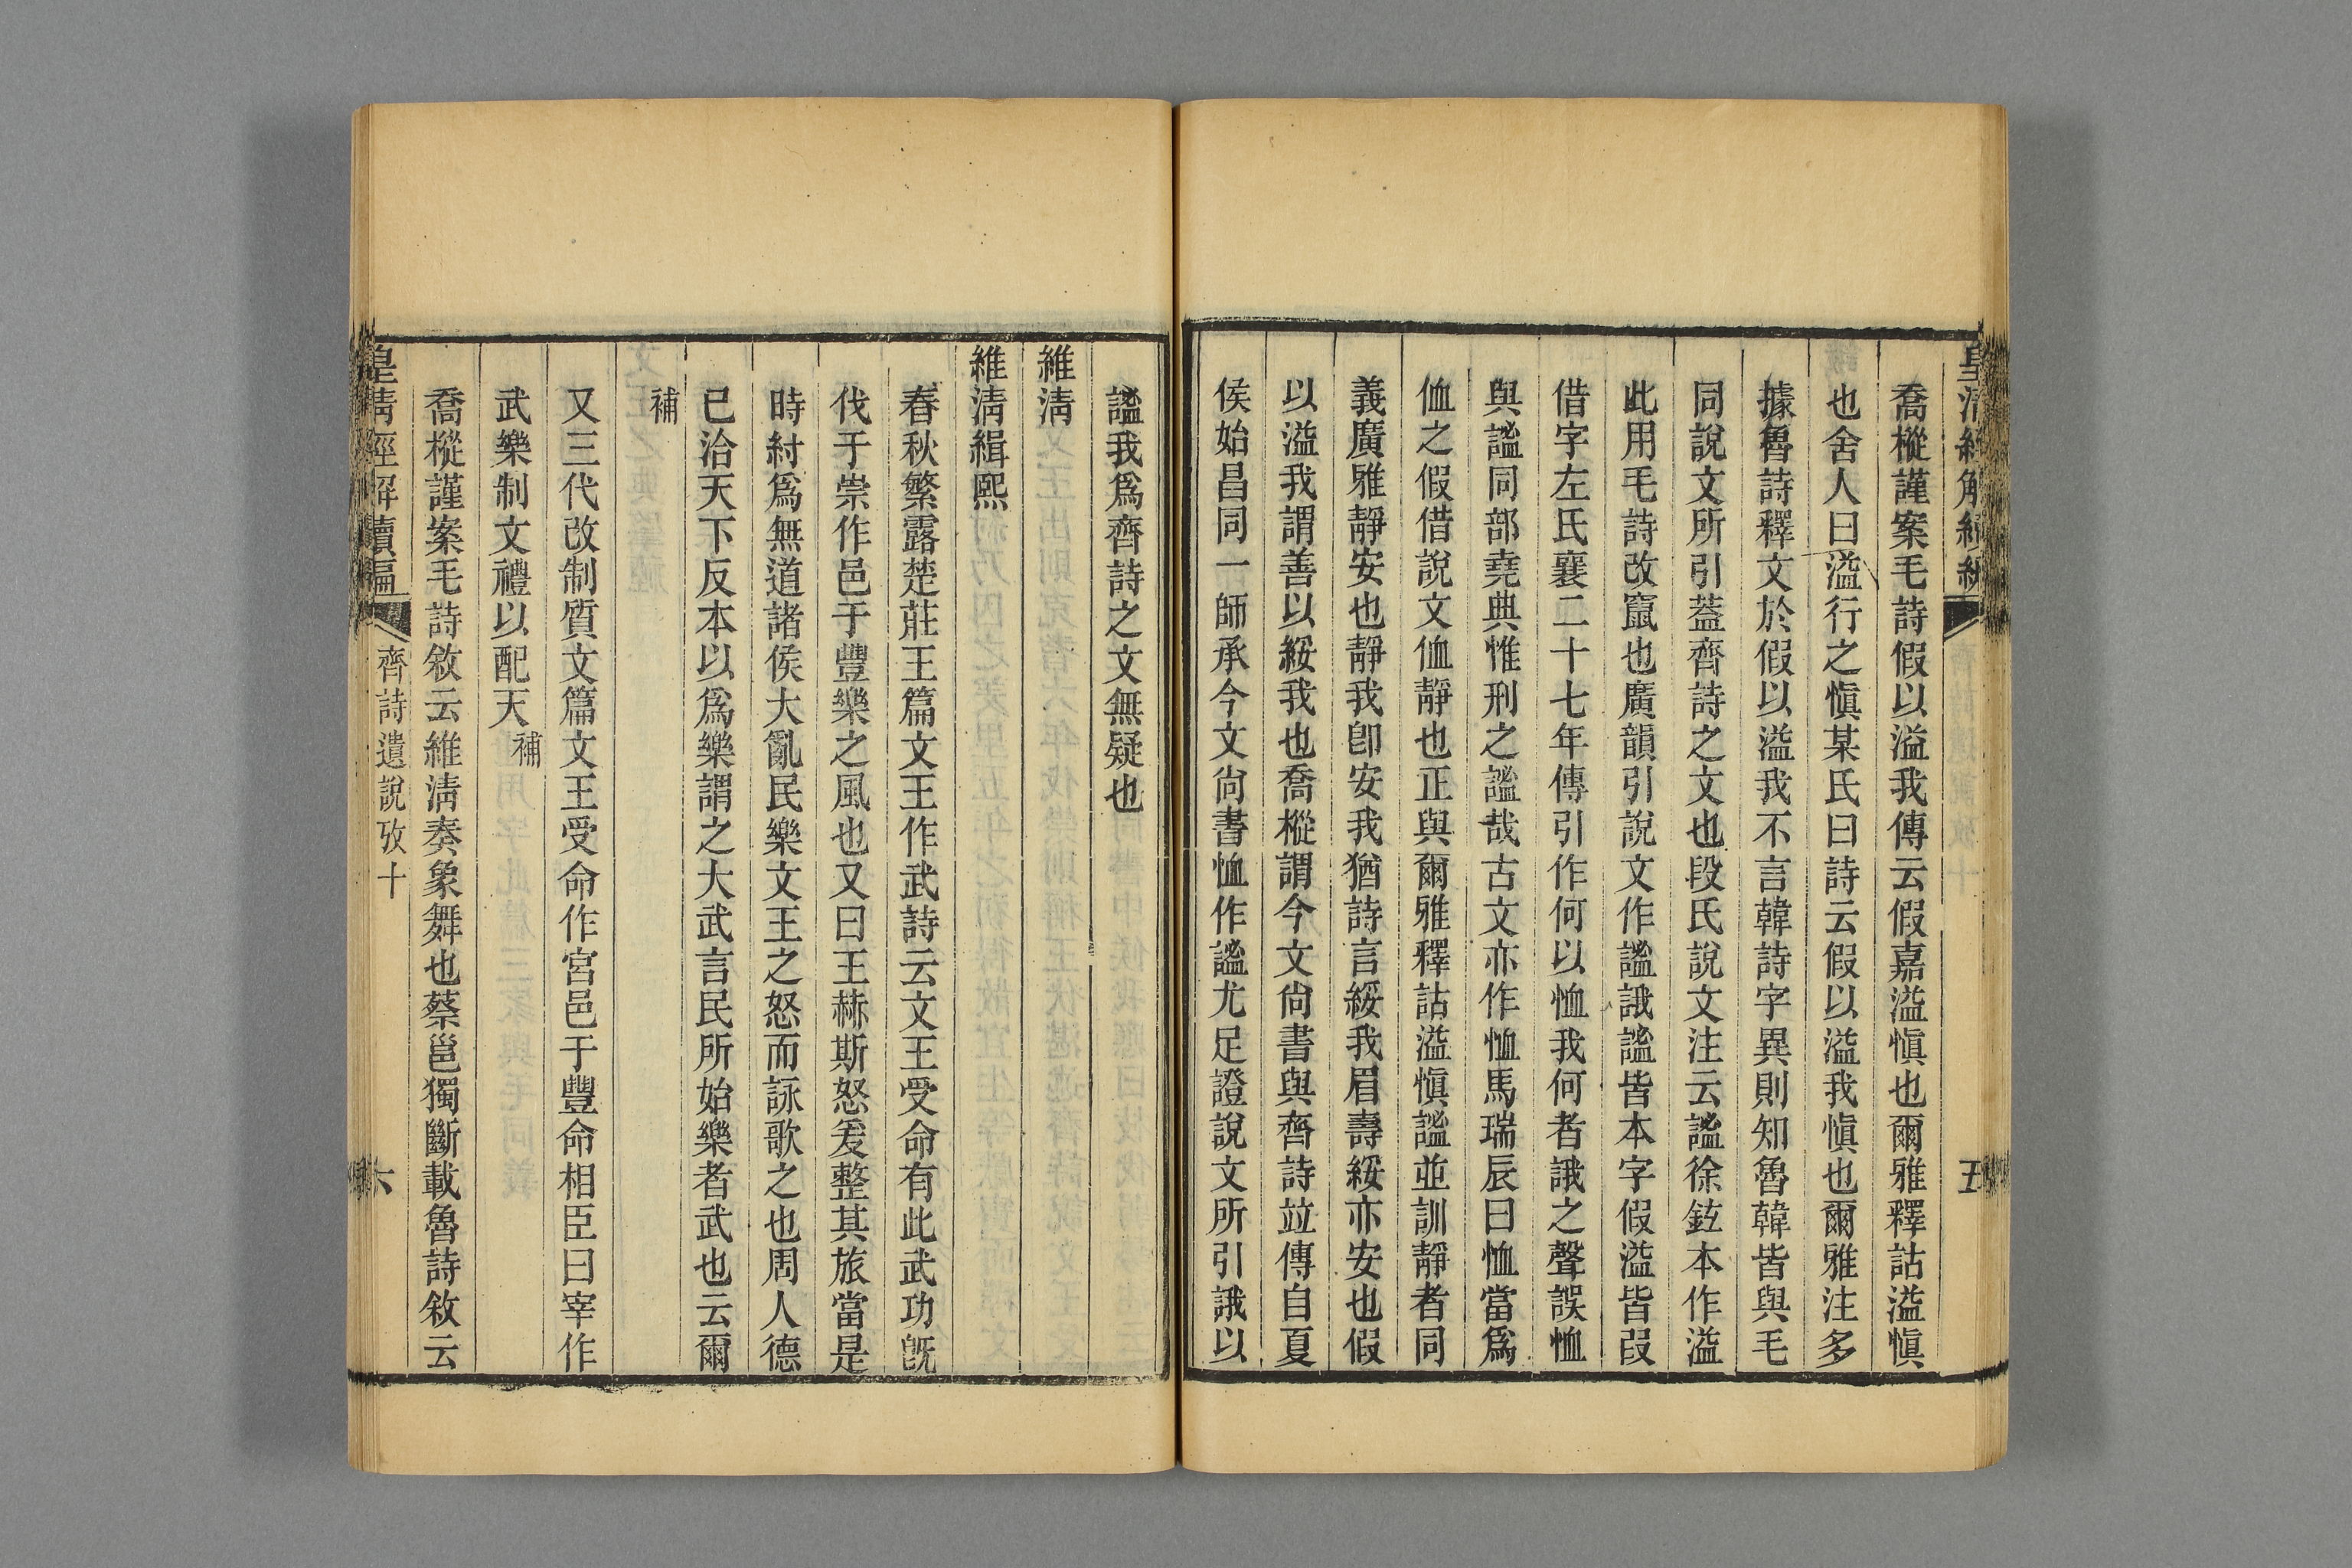 皇清經解續編
五
喬樅謹案毛詩假以溢我傳云假嘉溢愼也爾雅釋詁溢愼
也舍人曰溢行之愼某氏曰詩云假以溢我愼也爾雅注多
據魯詩釋文於假以溢我不言韓詩字異則知魯韓皆與毛
同說文所引蓋齊詩之文也段氏說文注云謐徐鉉本作溢
此用毛詩改竄也廣韻引說文作謐誐謐皆本字假溢皆叚
借字左氏襄二十七年傳引作何以恤我何者誐之聲誤恤
與謐同部堯典惟刑之謐哉古文亦作恤馬瑞辰曰恤當爲
侐之假借說文侐靜也正與爾雅釋詁溢愼謐並訓靜者同
義廣雅靜安也靜我卽安我猶詩言綏我眉壽綏亦安也假
以溢我謂善以綏我也喬樅謂今文尙書與齊詩竝傳自夏
侯始昌同一師承今文尙書恤作謐尤足證說文所引誐以
謐我爲齊詩之文無疑也
維淸
維淸緝熙
春秋繁露楚莊王篇文王作武詩云文王受命有此武功旣
伐于崇作邑于豐樂之風也又曰王赫斯怒爰整其旅當是
時紂爲無道諸侯大亂民樂文王之怒而詠歌之也周人德
已洽天下反本以爲樂謂之大武言民所始樂者武也云爾
補
又三代改制質文篇文王受命作宮邑于豐命相臣曰宰作
武樂制文禮以配天補
喬樅謹案毛詩敘云維淸奏象舞也蔡邕獨斷載魯詩敘云
皇清經解續編
齊詩遺說攷十
六